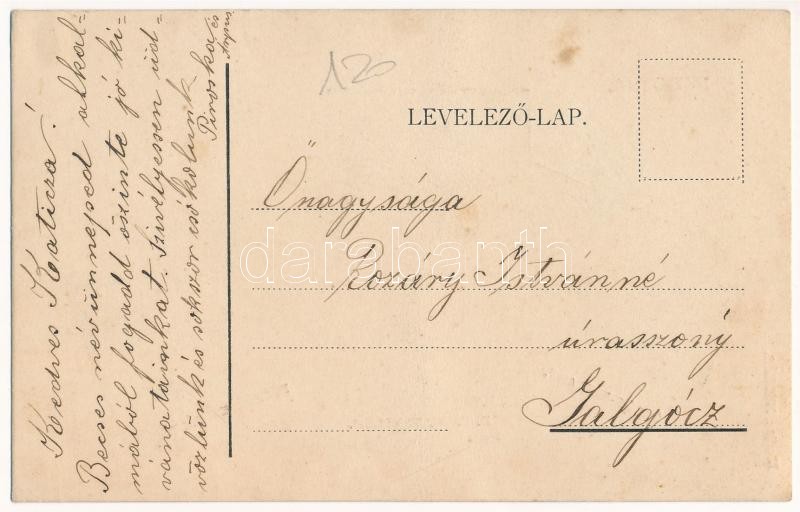 Kedves Katicza!
Becses névünneped alkal-
mából fogadd őszinte jó ki-
vánatainkat. Szivélyessen üd-
vözlünk és sokszor csókolunk
Piroska és
120
LEVELEZŐ-LAP.
Őnagysága
Rozáry Istvánné
úraszony
Galgócz
darabanth